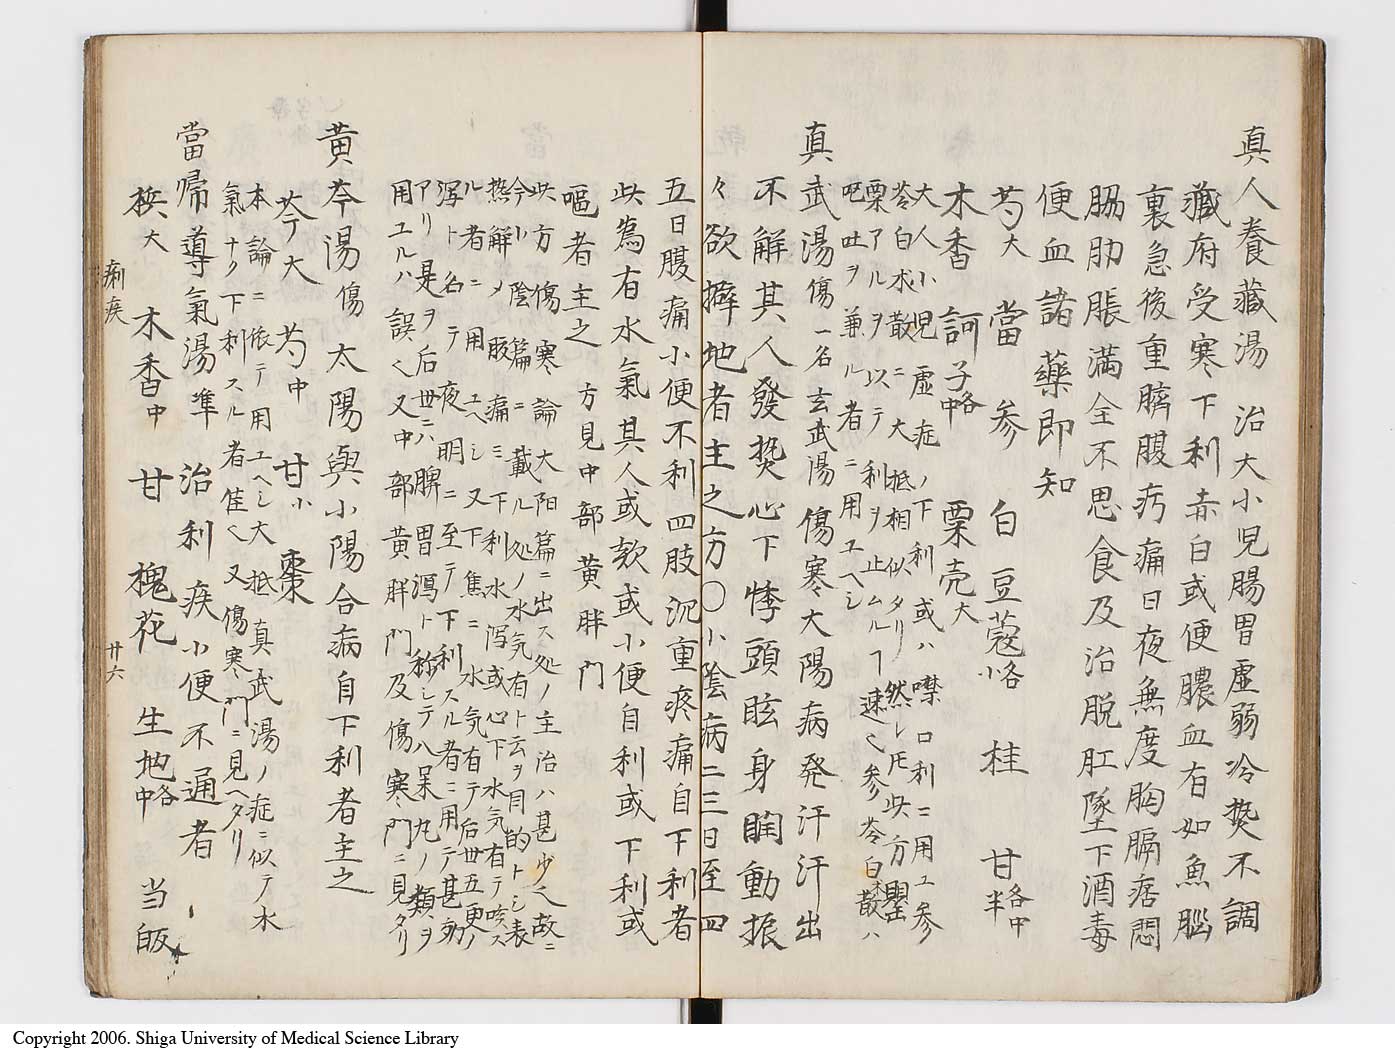 真人養藏湯　治大小児腸胃虚弱冷㷔不調
藏府受寒下利赤白或便膿血有如魚腦
裏急後重臍腹㽲痛日夜無度胸膈痞悶
脇肋脹滿全不思食及治脱肛墜下酒毒
便血諸藥即知
芍大　當　參　白　豆蔲各小　桂　甘各中半
木香　訶子各中　粟壳大
大人小児虚症ノ下利或ハ噤口利ニ用ユ参
苓白朮散ニ大抵相似タリ然レ𪜈此方罌
粟アルヲ以テ利ヲ止ムルヿ速く参苓白朮散ハ
吧吐ヲ兼ル者ニ用ユヘシ
真武湯傷一名玄武湯傷寒大陽病発汗汗出
不解其人發㷔心下悸頭眩身瞤動振
々欲擗地者主之方〇小陰病二三日至四
五日腹痛小便不利四肢沉重疼痛自下利者
此為有水氣其人或欬或小便自利或下利或
嘔者主之　方見中部黄胖門
此方傷寒論大阳篇ニ出ス処ノ主治ハ甚少く故ニ
今小陰篇ニ載ル処ノ水気有ト云ヲ目的トシ表
熱解メ腹痛ミ下利水瀉或心下水気有テ咳ス
ル者ニ用ユヘシ又下焦ニ水気有テ后丗五更ノ
瀉ト名テ夜明ニ至テ下利スル者ニ用テ甚効
アリ是ヲ后丗ニハ脾胃瀉ト称シテ八杲丸ノ類ヲ
用ユルハ誤く又中部黄胖門及傷寒門ニ見タリ
黄芩湯傷　太陽與小陽合病自下利者主之
芩大　芍中　甘小　棗
本論ニ依テ用ユヘシ大抵真武湯ノ症ニ似テ水
氣ナク下利スル者隹く又傷寒門ニ見ヘタリ
當帰導氣湯準　治利疾小便不通者
梹大　木香中　甘　槐花　生地各中　当皈
痢疾
廿六
Copyright 2006. Shiga University of Medical Science Library